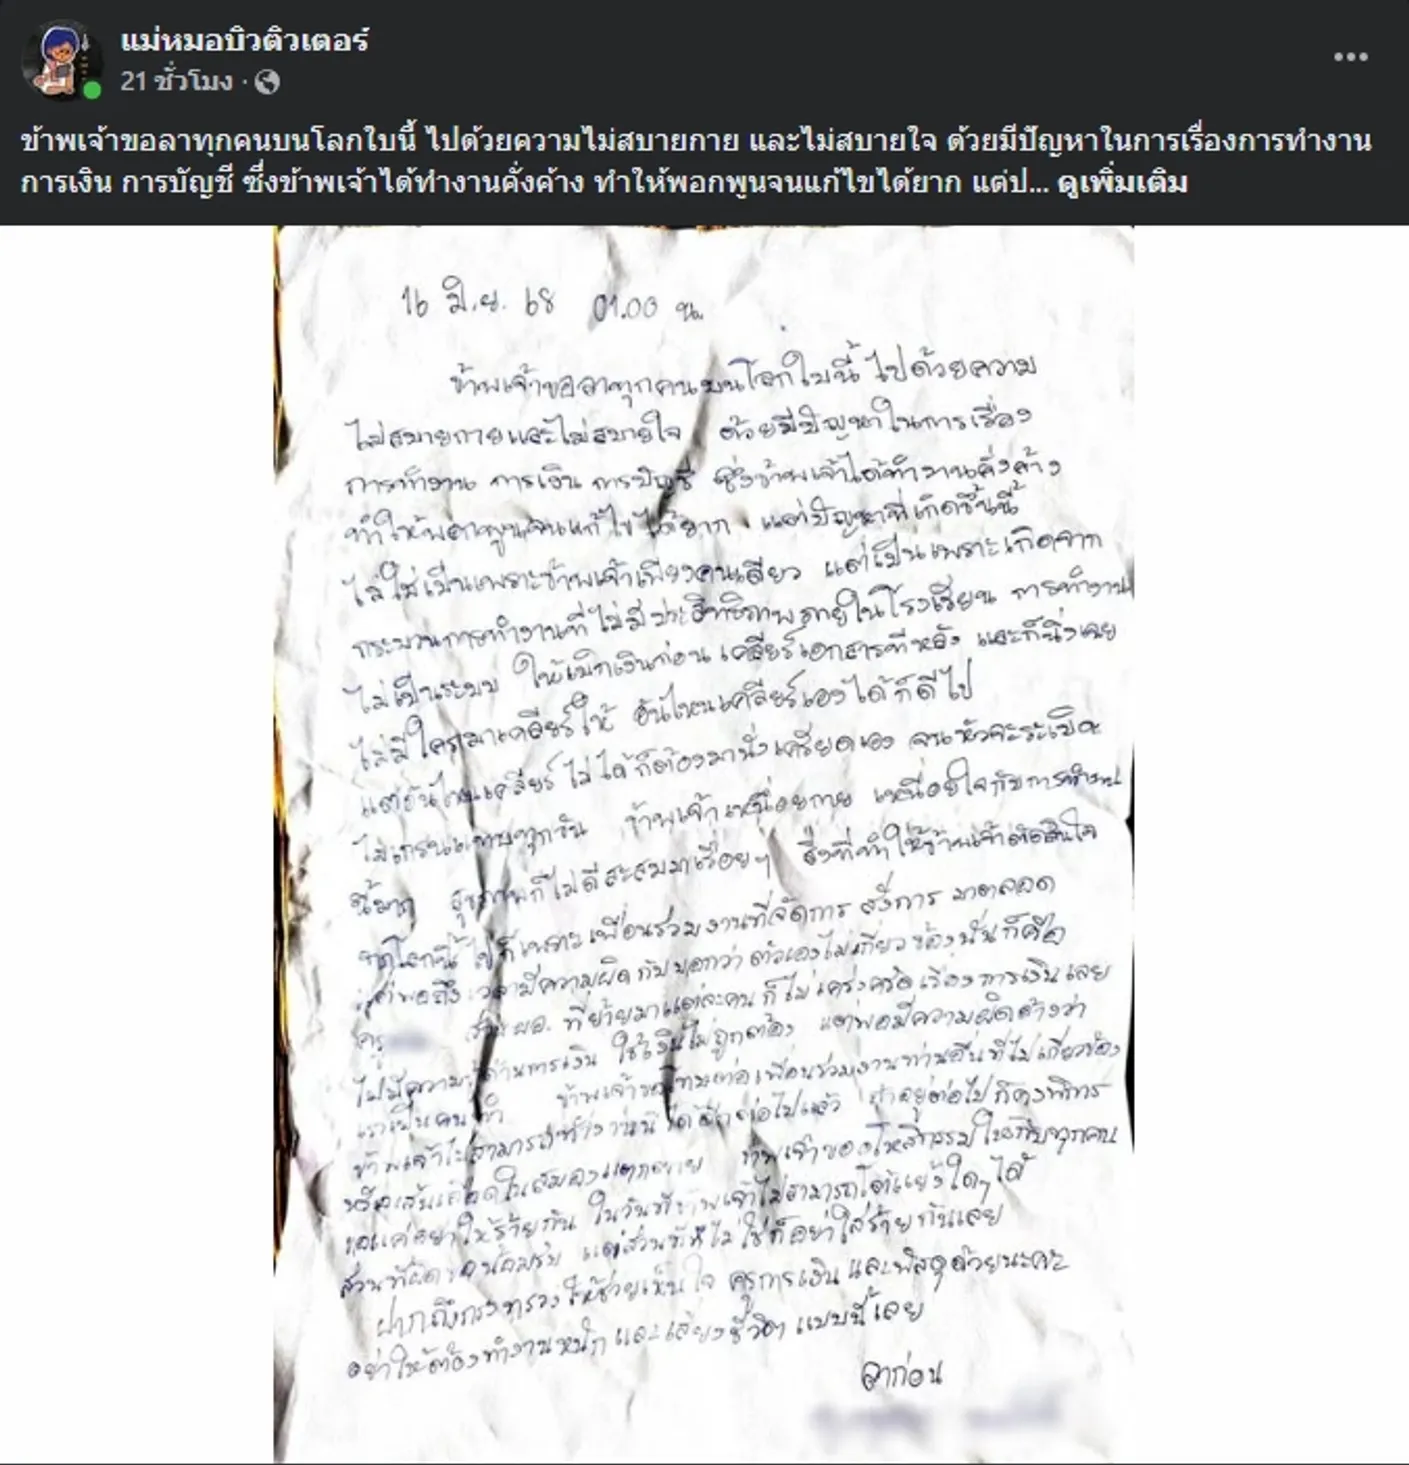 แม่หมอบิวติวเตอร์
21 ชั่วโมง ·
ข้าพเจ้าขอลาทุกคนบนโลกใบนี้ ไปด้วยความไม่สบายกาย และไม่สบายใจ ด้วยมีปัญหาในการเรื่องการทำงาน
การเงิน การบัญชี ซึ่งข้าพเจ้าได้ทำงานคั่งค้าง ทำให้พอกพูนจนแก้ไขได้ยาก แต่ป... ดูเพิ่มเติม
16 มิ.ย. 68 01.00 น.
ข้าพเจ้าขอลาทุกคนบนโลกใบนี้ ไปด้วยความ
ไม่สบายกายและไม่สบายใจ ด้วยมีปัญหาในการเรื่อง
การทำงาน การเงิน การบัญชี ซึ่งข้าพเจ้าได้ทำงานคั่งค้าง
ทำให้พอกพูนจนแก้ไขได้ยาก แต่ปัญหาที่เกิดขึ้นนี้
ไม่ใช่เป็นเพราะข้าพเจ้าเพียงคนเดียว แต่เป็นเพราะเกิดจาก
กระบวนการทำงานที่ไม่มีประสิทธิภาพภายในโรงเรียน การทำงาน
ไม่เป็นระบบ ให้เบิกเงินก่อน เคลียร์เอกสารทีหลัง และก็นิ่งเฉย
ไม่มีใครมาเคลียร์ให้ อันไหนเคลียร์เองได้ก็ดีไป
แต่อันไหนเคลียร์ไม่ได้ก็ต้องมานั่งเครียดเอง จนหัวจะระเบิด
ไม่เกรนแทบทุกวัน ข้าพเจ้าเหนื่อยกาย เหนื่อยใจกับการทำงาน
นี้มาก สุขภาพก็ไม่ดีสะสมมาเรื่อยๆ สิ่งที่ทำให้ข้าพเจ้าตัดสินใจ
จากโลกนี้ไปก็เพราะเพื่อนร่วมงานที่จัดการ สั่งการ มาตลอด
แต่พอถึงเวลามีความผิดกับบอกว่าตัวเองไม่เกี่ยวข้องนั่นก็คือ
ครู ส่วน ผอ. ที่ย้ายมาแต่ละคนก็ไม่เคร่งครัดเรื่องการเงินเลย
ไม่มีความรู้ด้านการเงิน ใช้เงินไม่ถูกต้อง แต่พอมีความผิดอ้างว่า
เราเป็นคนทำ ข้าพเจ้าขอโทษต่อเพื่อนร่วมงานท่านอื่นที่ไม่เกี่ยวข้อง
ข้าพเจ้าไม่สามารถทำงานนี้ได้อีกต่อไปแล้ว ถ้าอยู่ต่อไปก็คงพิการ
หรือเส้นเลือดในสมองแตกตาย ข้าพเจ้าขออโหสิกรรมให้กับทุกคน
ขอแค่อย่าให้ร้ายกัน ในวันที่ข้าพเจ้าไม่สามารถโต้แย้งใดๆได้
ส่วนที่ผิดขอน้อมรับ แต่ส่วนที่ไม่ใช่ก็อย่าใส่ร้ายกันเลย
ฝากถึงกระทรวงให้ช่วยเห็นใจ ครูการเงินและพัสดุด้วยนะคะ
อย่าให้ต้องทำงานหนัก และเสี่ยงชีวิตๆ แบบนี้เลย
ลาก่อน